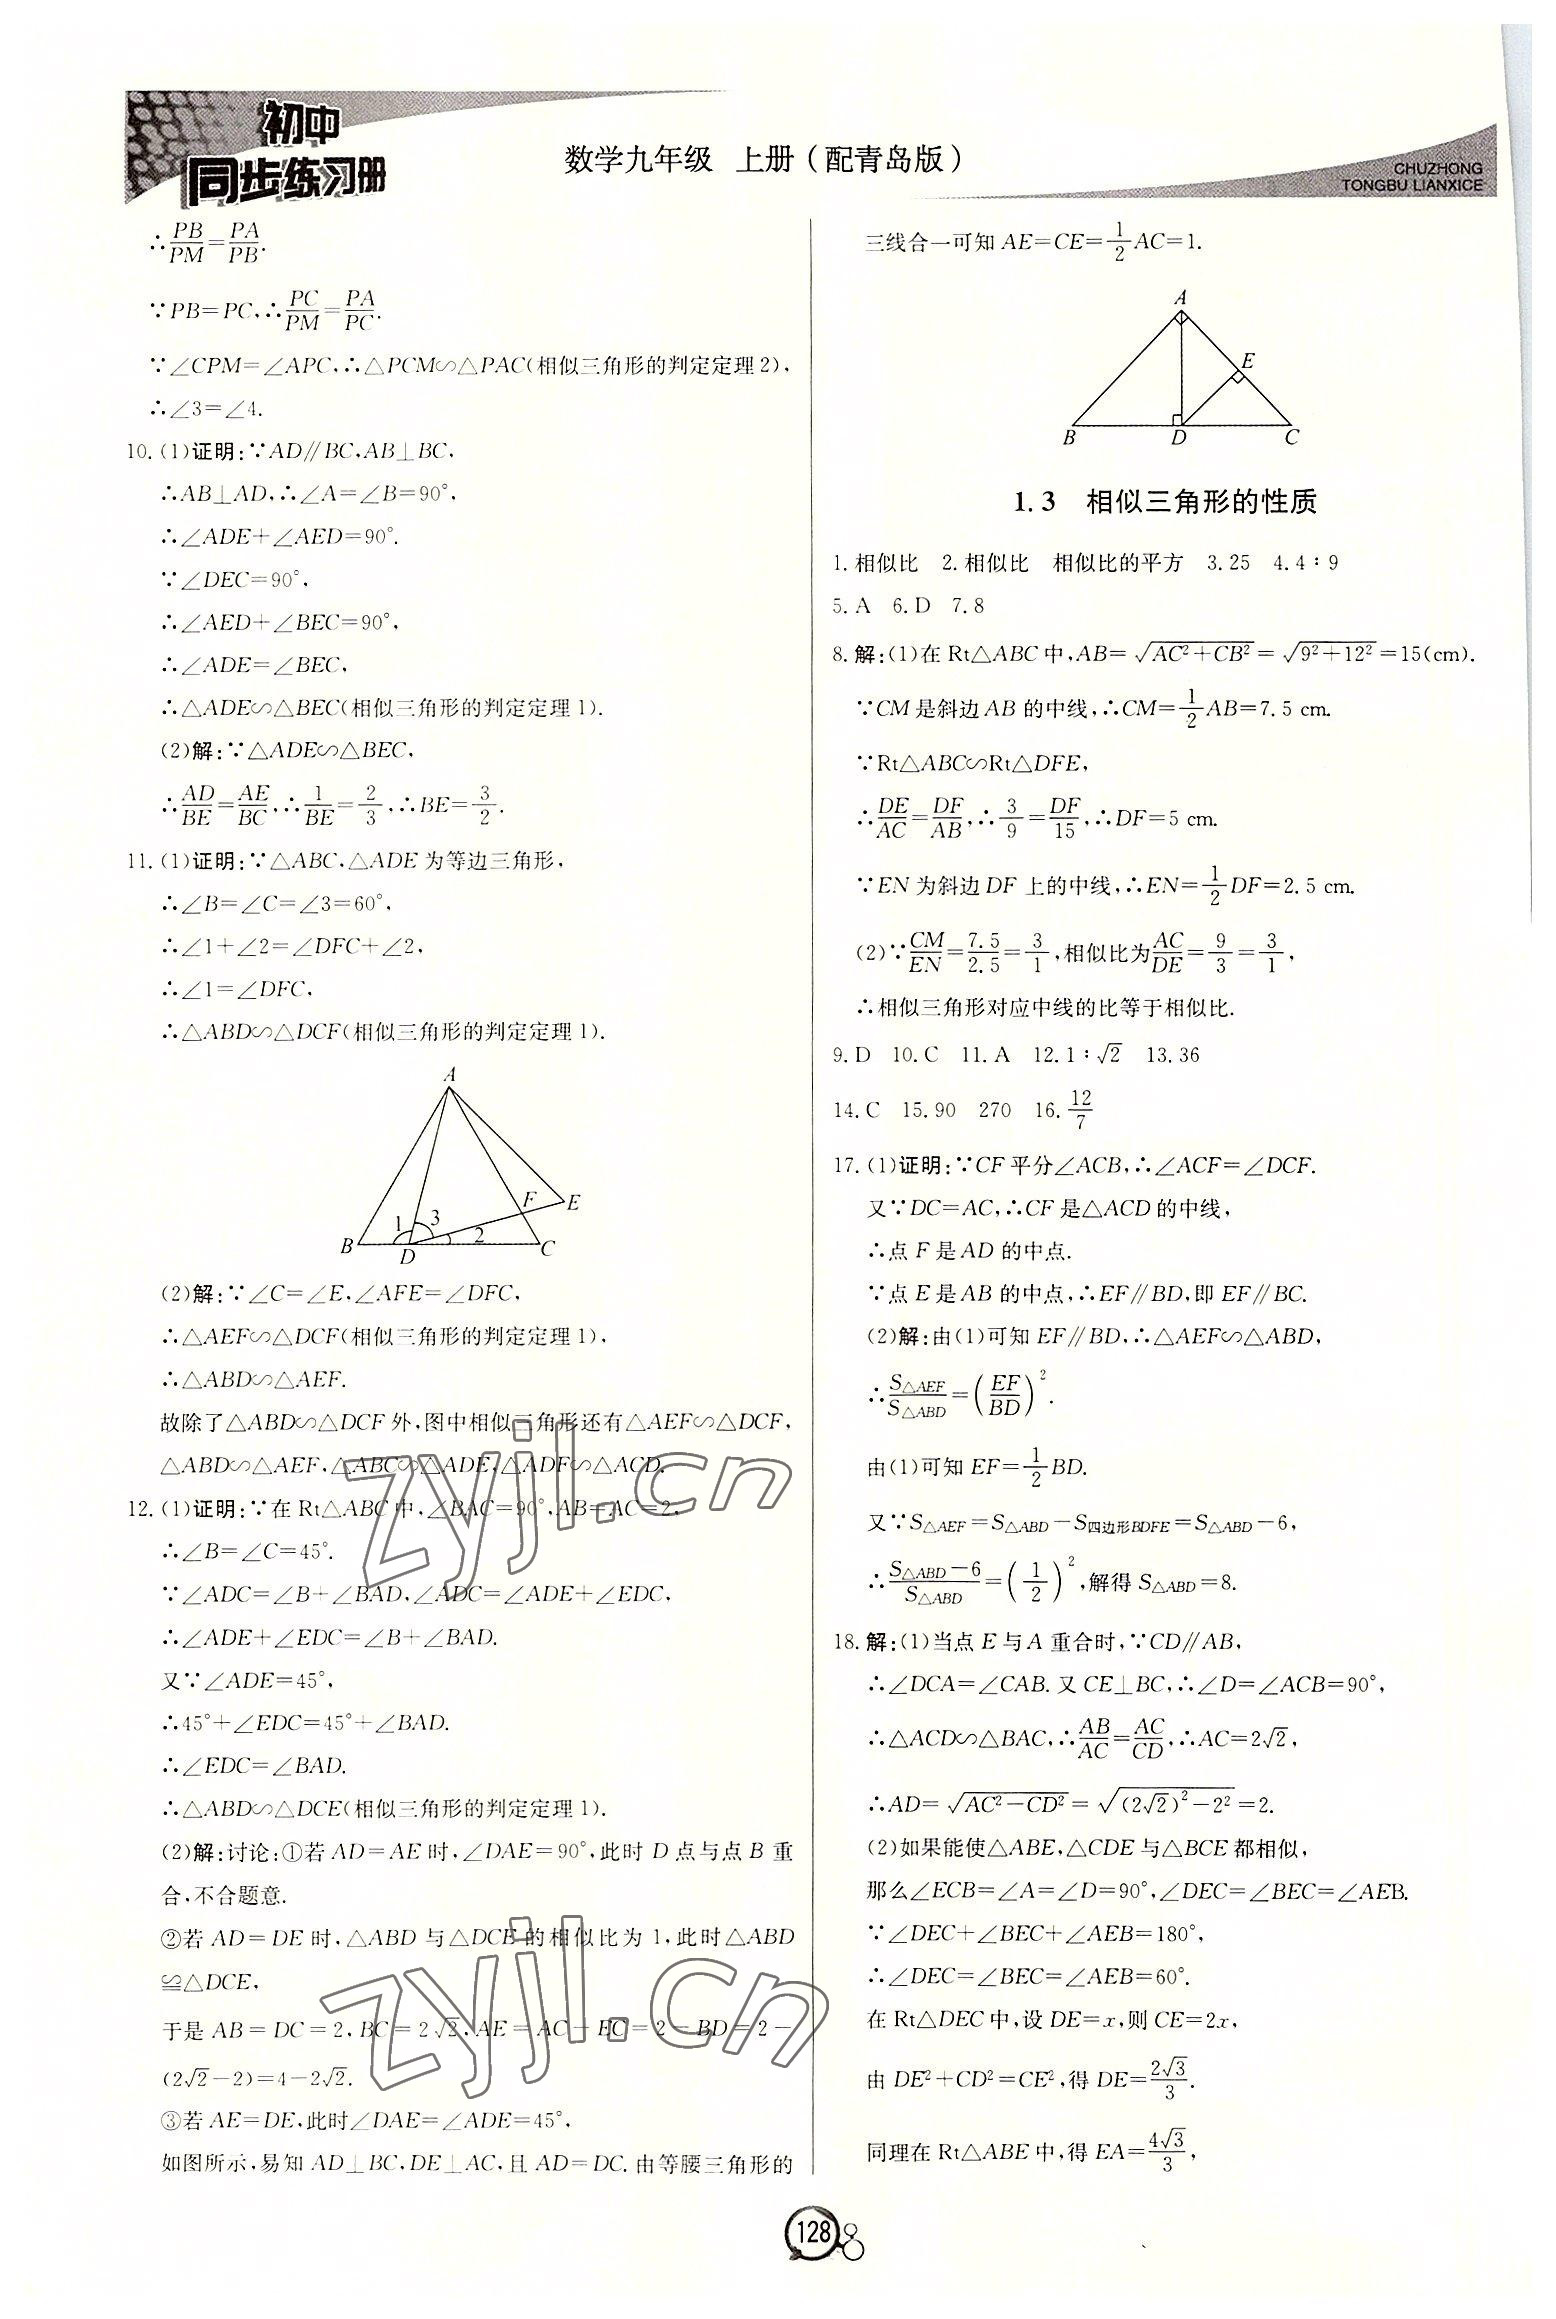 初中
同步练习册
数学九年级 上册(配青岛版)
CHUZHONG
TONGBU LIANXICE
∴PB/PM=PA/PB.
∵PB=PC,∴PC/PM=PA/PC.
∵∠CPM=∠APC,∴△PCM∽△PAC(相似三角形的判定定理2),
∴∠3=∠4.
10.(1)证明:∵AD∥BC,AB⊥BC,
∴AB⊥AD,∴∠A=∠B=90°,
∴∠ADE+∠AED=90°.
∵∠DEC=90°,
∴∠AED+∠BEC=90°,
∴∠ADE=∠BEC,
∴△ADE∽△BEC(相似三角形的判定定理1).
(2)解:∵△ADE∽△BEC,
∴AD/BE=AE/BC,∴1/BE=2/3,∴BE=3/2.
11.(1)证明:∵△ABC,△ADE为等边三角形,
∴∠B=∠C=∠3=60°,
∴∠1+∠2=∠DFC+∠2,
∴∠1=∠DFC,
∴△ABD∽△DCF(相似三角形的判定定理1).
A
F
E
1
3
2
B
D
C
(2)解:∵∠C=∠E,∠AFE=∠DFC,
∴△AEF∽△DCF(相似三角形的判定定理1),
∴△ABD∽△AEF.
故除了△ABD∽△DCF外,图中相似三角形还有△AEF∽△DCF,
△ABD∽△AEF,△ABC∽△ADE,△ADF∽△ACD.
12.(1)证明:∵在Rt△ABC中,∠BAC=90°,AB=AC=2,
∴∠B=∠C=45°.
∵∠ADC=∠B+∠BAD,∠ADC=∠ADE+∠EDC,
∴∠ADE+∠EDC=∠B+∠BAD.
又∵∠ADE=45°,
∴45°+∠EDC=45°+∠BAD.
∴∠EDC=∠BAD.
∴△ABD∽△DCE(相似三角形的判定定理1).
(2)解:讨论:①若AD=AE时,∠DAE=90°,此时D点与点B重
合,不合题意.
②若AD=DE时,△ABD与△DCE的相似比为1,此时△ABD
≌△DCE,
于是AB=DC=2,BC=2√2,AE=AC-EC=2-BD=2-
(2√2-2)=4-2√2.
③若AE=DE,此时∠DAE=∠ADE=45°,
如图所示,易知AD⊥BC,DE⊥AC,且AD=DC.由等腰三角形的
三线合一可知AE=CE=1/2AC=1.
A
E
B
D
C
1.3 相似三角形的性质
1.相似比 2.相似比 相似比的平方 3.25 4.4∶9
5.A 6.D 7.8
8.解:(1)在Rt△ABC中,AB=√(AC²+CB²)=√(9²+12²)=15(cm).
∵CM是斜边AB的中线,∴CM=1/2AB=7.5 cm.
∵Rt△ABC∽Rt△DFE,
∴DE/AC=DF/AB,∴3/9=DF/15,∴DF=5 cm.
∵EN为斜边DF上的中线,∴EN=1/2DF=2.5 cm.
(2)∵CM/EN=7.5/2.5=3/1,相似比为AC/DE=9/3=3/1,
∴相似三角形对应中线的比等于相似比.
9.D 10.C 11.A 12.1∶√2 13.36
14.C 15.90 270 16.12/7
17.(1)证明:∵CF平分∠ACB,∴∠ACF=∠DCF.
又∵DC=AC,∴CF是△ACD的中线,
∴点F是AD的中点.
∵点E是AB的中点,∴EF∥BD,即EF∥BC.
(2)解:由(1)可知EF∥BD,∴△AEF∽△ABD,
∴S△AEF/S△ABD=(EF/BD)².
由(1)可知EF=1/2BD.
又∵S△AEF=S△ABD-S四边形BDFE=S△ABD-6,
∴(S△ABD-6)/S△ABD=(1/2)²,解得S△ABD=8.
18.解:(1)当点E与A重合时,∵CD∥AB,
∴∠DCA=∠CAB.又CE⊥BC,∴∠D=∠ACB=90°,
∴△ACD∽△BAC,∴AB/AC=AC/CD,∴AC=2√2,
∴AD=√(AC²-CD²)=√((2√2)²-2²)=2.
(2)如果能使△ABE,△CDE与△BCE都相似,
那么∠ECB=∠A=∠D=90°,∠DEC=∠BEC=∠AEB.
∵∠DEC+∠BEC+∠AEB=180°,
∴∠DEC=∠BEC=∠AEB=60°.
在Rt△DEC中,设DE=x,则CE=2x,
由DE²+CD²=CE²,得DE=2√3/3.
同理在Rt△ABE中,得EA=4√3/3,
zyjl.cn
zyjl.cn
128